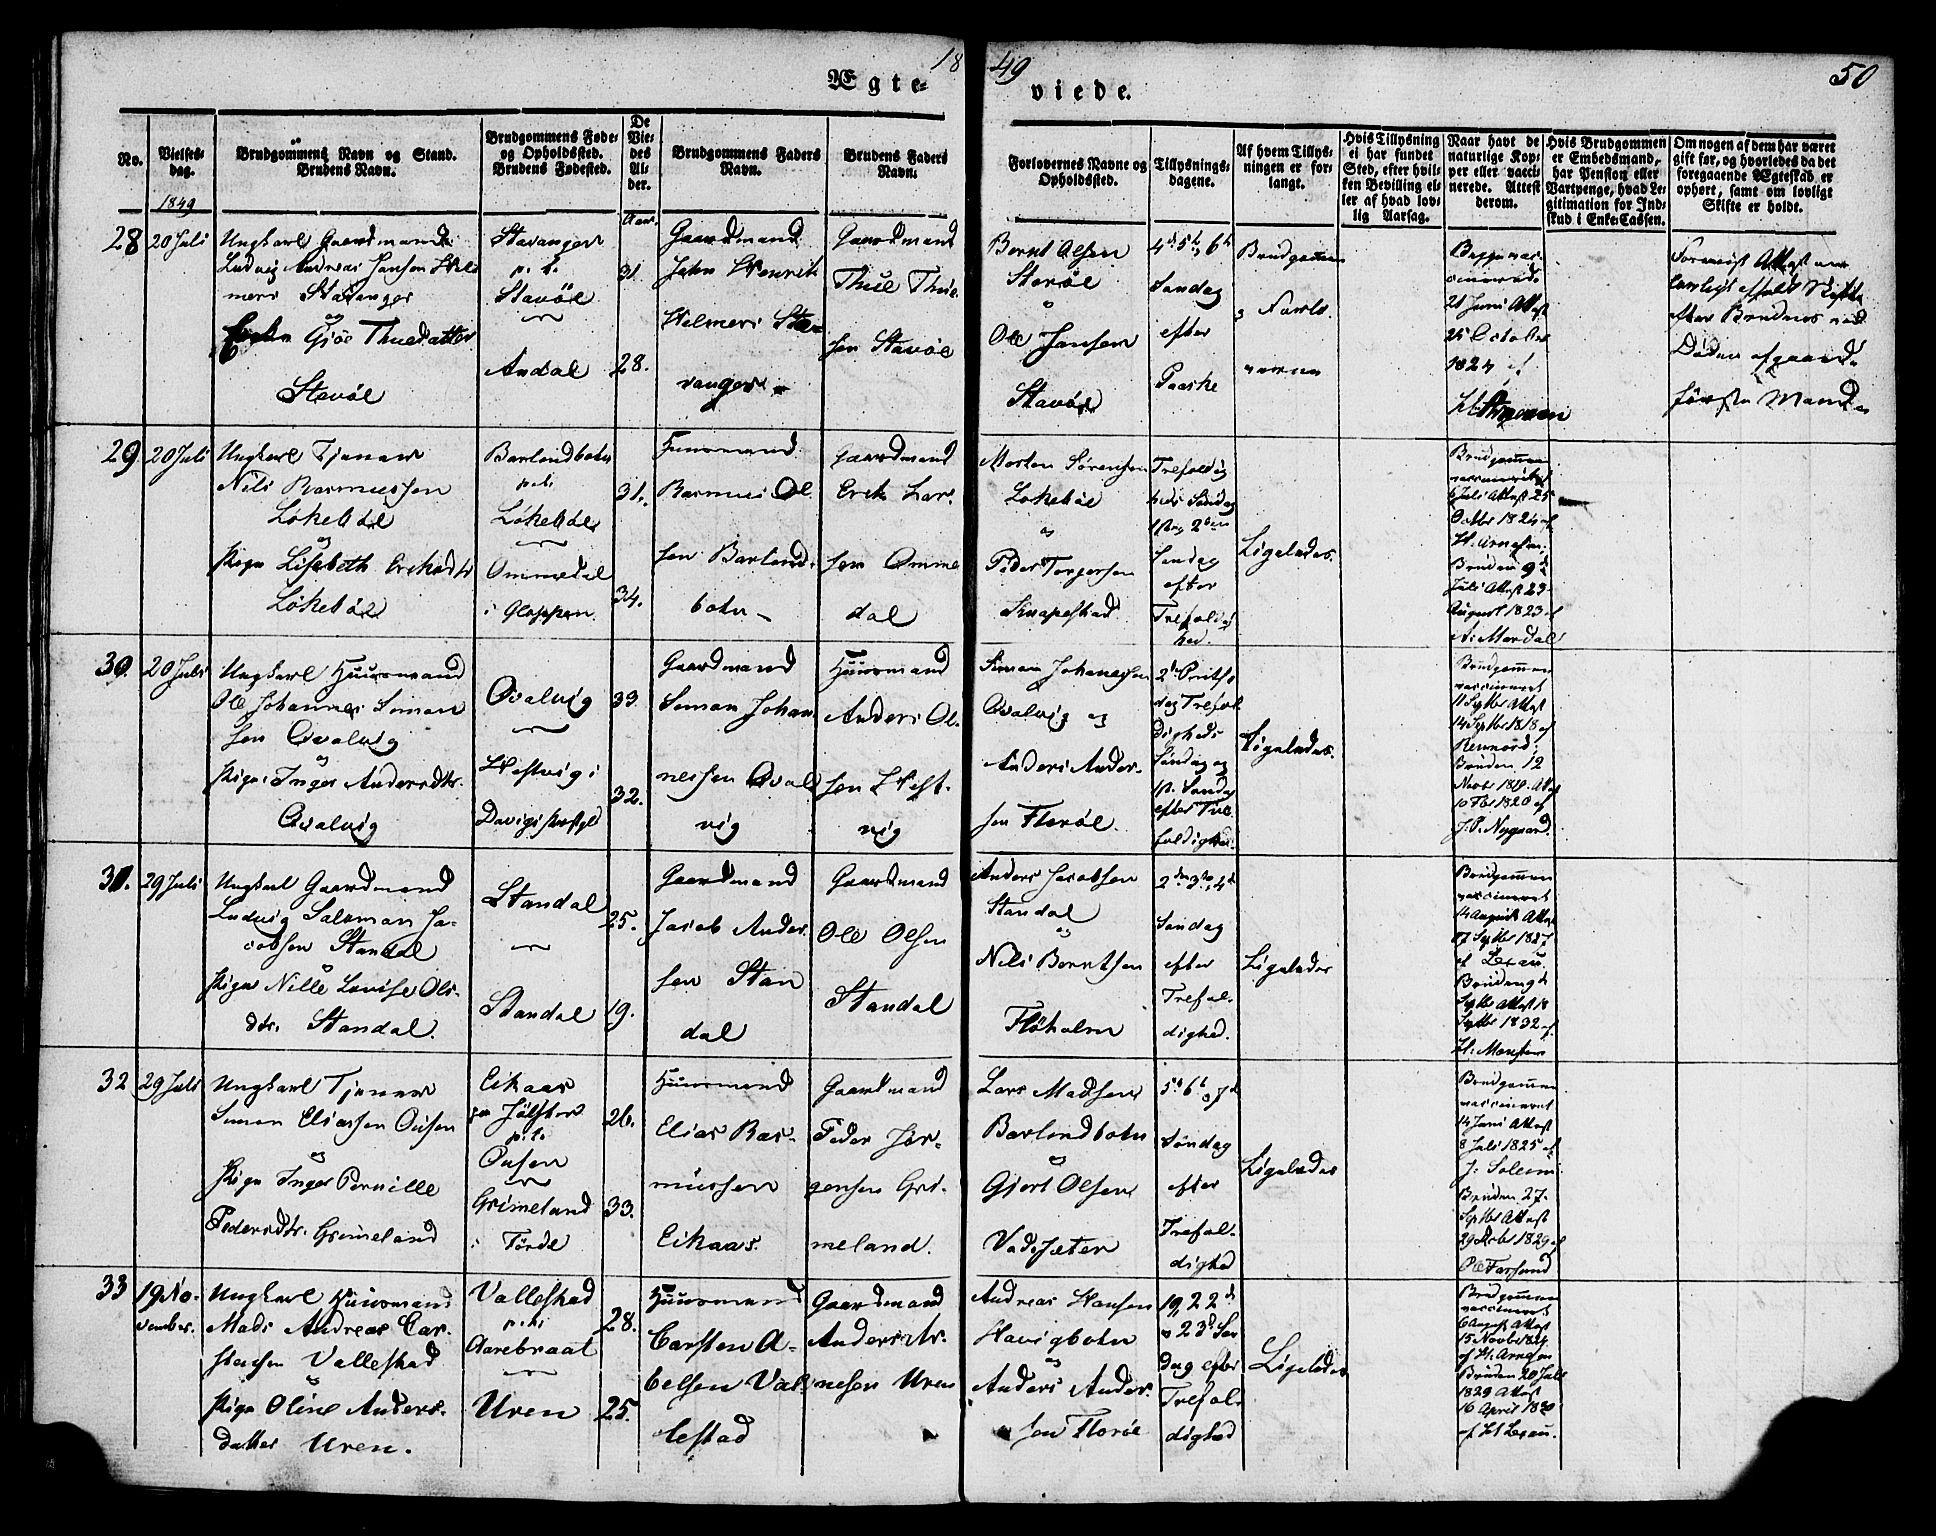 18 49
50
Ægte-
viede.
No.
Vielses-
dag.
1849
Brudgommens Navn og Stand.
Brudens Navn.
Brudgommens Føde-
og Opholdssted.
Brudens Fødested.
De
Vie-
des
Al-
der.
Brudgommens Faders
Navn.
Brudens Faders
Navn.
Forlovernes Navne og
Opholdssted.
Tillysnings-
dagene.
Af hvem Tillys-
ningen er for-
langt.
Hvis Tillysning
ei har fundet
Sted, efter hvil-
ken Bevilling el-
ler af hvad lov-
lig Aarsag.
Naar havt de
naturlige Kop-
per eller vacci-
nerede. Attest
derom.
Hvis Brudgommen
er Embedsmand,
har Pension eller
Vartpenge, hvad Le-
gitimation for Ind-
skud i Enke-Cassen.
Om nogen af dem har været
gift før, og hvorledes da det
foregaaende Ægteskab er
ophørt, samt om lovligt
Skifte er holdt.
28
20 Juli
Ungkarl Gaardmand
Ludvig Andreas Jansen Hel
mers Stavanger
og
Enke Gjøe Thuedatter
Stavøe
Stavanger
p. t.
Stavøe
Andal
Aar.
31.
28.
Gaardmand
Jahn Henrik
Helmers Sta-
vanger
Gaardmand
Thue Thue
sen Stavøe
Bernt Olsen
Stavøe
Ole Jansen
Stavøe
4de 5te 6te
Søndag
efter
Paaske
Brudgommen
25 October
29
20 Juli
Ungkarl Tjener
Nils Rasmussen
Løkebøe
og
Pige Lisebeth Eriksdtr
Løkebøe
Barlondbotn
p.t.
Løkebøe
Ommedal
i Gloppen
31.
34.
Huusmand
Rasmus Ol
sen Barlond-
botn
Gaardmand
Erik Lar-
sen Omme
dal
Morten Sørensen
Løkebøe
og
Peder Torgersen
Knapestad
Trefoldig
heds Søndag
Søndag
efter
Trefoldig
hed.
Ligeledes.
Brudgommen
vaccineret
6 Juli Attest 25
Octbr 1824 af
H. Arnesen,
Bruden 9de
Juli Attest 23
August 1823 af
A. Mardal
30.
20 Juli
Ungkarl Huusmand
Ole Johannes Simon
sen Qvalvig
og
Pige Inger Andersdtr.
Qvalvig
Qvalvig
Hestvig i
33.
32.
Gaardmand
Simon Johan
nessen Qval
vig
Huusmand
Anders Ol-
sen Hest-
vig
Simon Johannessen
Qvalvig og
Anders Ander-
sen Florøe.
dag Trefol
digheds
Søndag og
efter Tre
foldighed.
Ligeledes.
Brudgommen
vaccineret
11 Septbr Attest
14 Septbr 1818 af
Bruden 12
J. P. Nygaard.
31.
29 Juli
Ungkarl Gaardmand
Ludvig Salomon Ja-
cobsen Standal
og
Pige Nille Lovise Ols-
dtr. Standal.
Standal
Standal
25.
19.
Gaardmand
Jacob Ander-
sen Stan
dal
Gaardmand
Ole Olsen
Standal
Anders Jacobsen
Standal
og
Nils Berntsen
Fløholm
2den 3die 4de
Søndag
efter
Trefol-
dighed.
Ligeledes
Brudgommen
vaccineret
14 August Attest
17 Septbr 1827
af Lexau.
Septbr Attest 18
Septbr 1832 af
32
29 Juli
Ungkarl Tjener
Simon Eliassen Ousen
og
Pige Inger Pernille
Pedersdtr. Grimeland
Eikaas
paa Jølster
p.t.
Ousen
Grimeland
i Førde
26.
33.
Huusmand
Elias Ras-
mussen
Eikaas.
Gaardmand
Peder Jør-
gensen Gri-
meland.
Lars Madsen
Barlondbotn
og
Gjert Olsen
Vadsæter
5te 6te 7de
Søndag
efter
Trefol-
dighed
Ligeledes
Brudgommen
vaccineret
14 Juni Attest
8 Juli 1825 af
J. Soleim
Bruden 27.
Septbr Attest
29 Octbr 1829 af
33
19 No-
vember.
Ungkarl Huusmand
Mads Andreas Car-
stensen Vallestad
og
Pige Oline Anders-
datter Uren.
Vallestad
p.t.
Aarebraat
Uren
28.
25.
Huusmand
Carsten A-
belsen Val-
lestad
Gaardmand
Anders Ar-
nesen Uren
Andreas Hansen
Havigbotn
og
Anders Ander-
sen Florøe
19, 22de
og 23de Søn
dag efter
Trefol-
dighed
Ligeledes
Brudgommen
vaccineret
6 August Attest
15 Novbr 1824
af H. Arnesen
Bruden 20 Juli
1829 Attest
16 April 1830
af H Lexau.